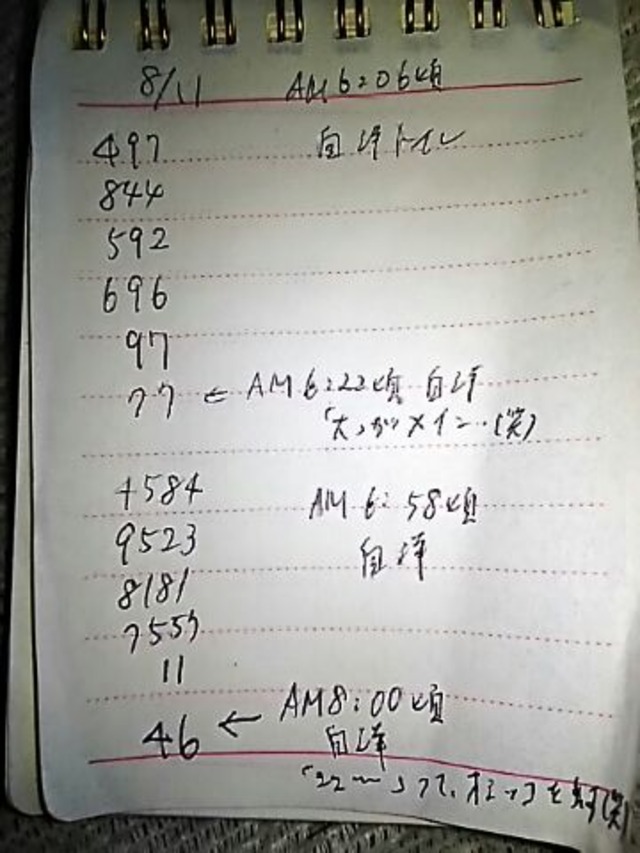 8/11 AM 6:06頃
497 自洋トイレ
844
592
696
97
77 ← AM 6:22頃 自洋
「大」がメイン・・(笑)
4584 AM 6:58頃
9523 自洋
8181
7557
11
46 ← AM8:00頃
自洋
(笑)